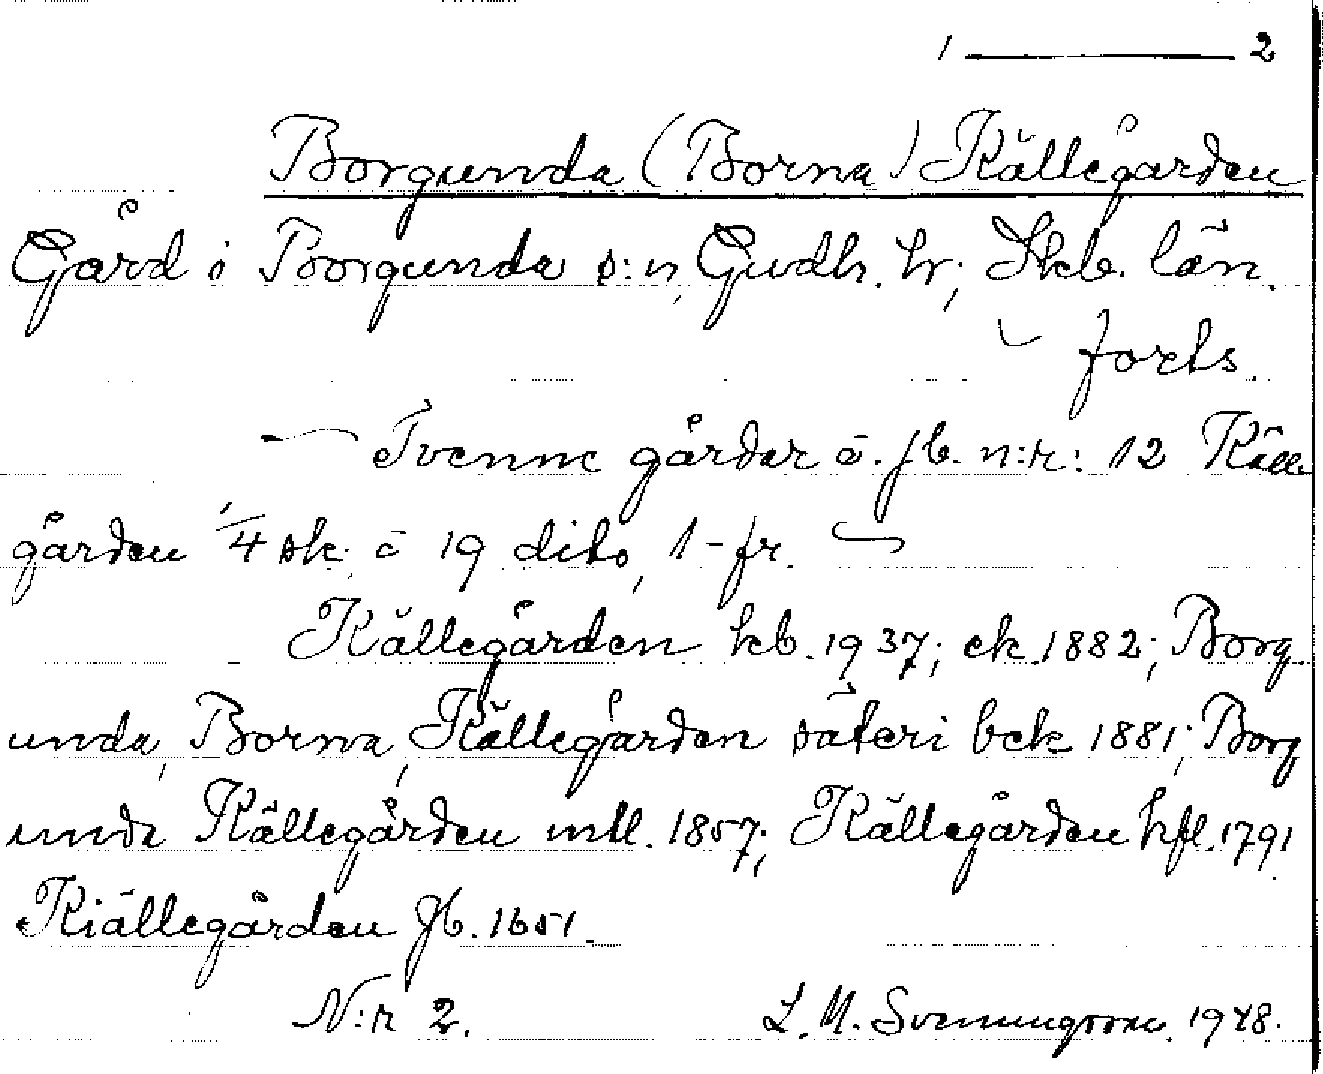 1 — 2
Borgunda (Borna) Källegården
Gård i Borgunda s:n, Gudh. hr; Skb. län.
forts.
— Tvenne gårdar ā. jb. n:r: 12 Källe
gården 1/4 sk. ā 19 dito, 1 - fr.
Källegården kb. 1937; ek. 1882; Borg
unda, Borna, Källegården säteri bek 1881; Borg
unda Källegården mtl. 1857; Källegården hfl. 1791
Kiällegården Jb. 1651.
N:r 2. L. M. Svenungsson. 1948.